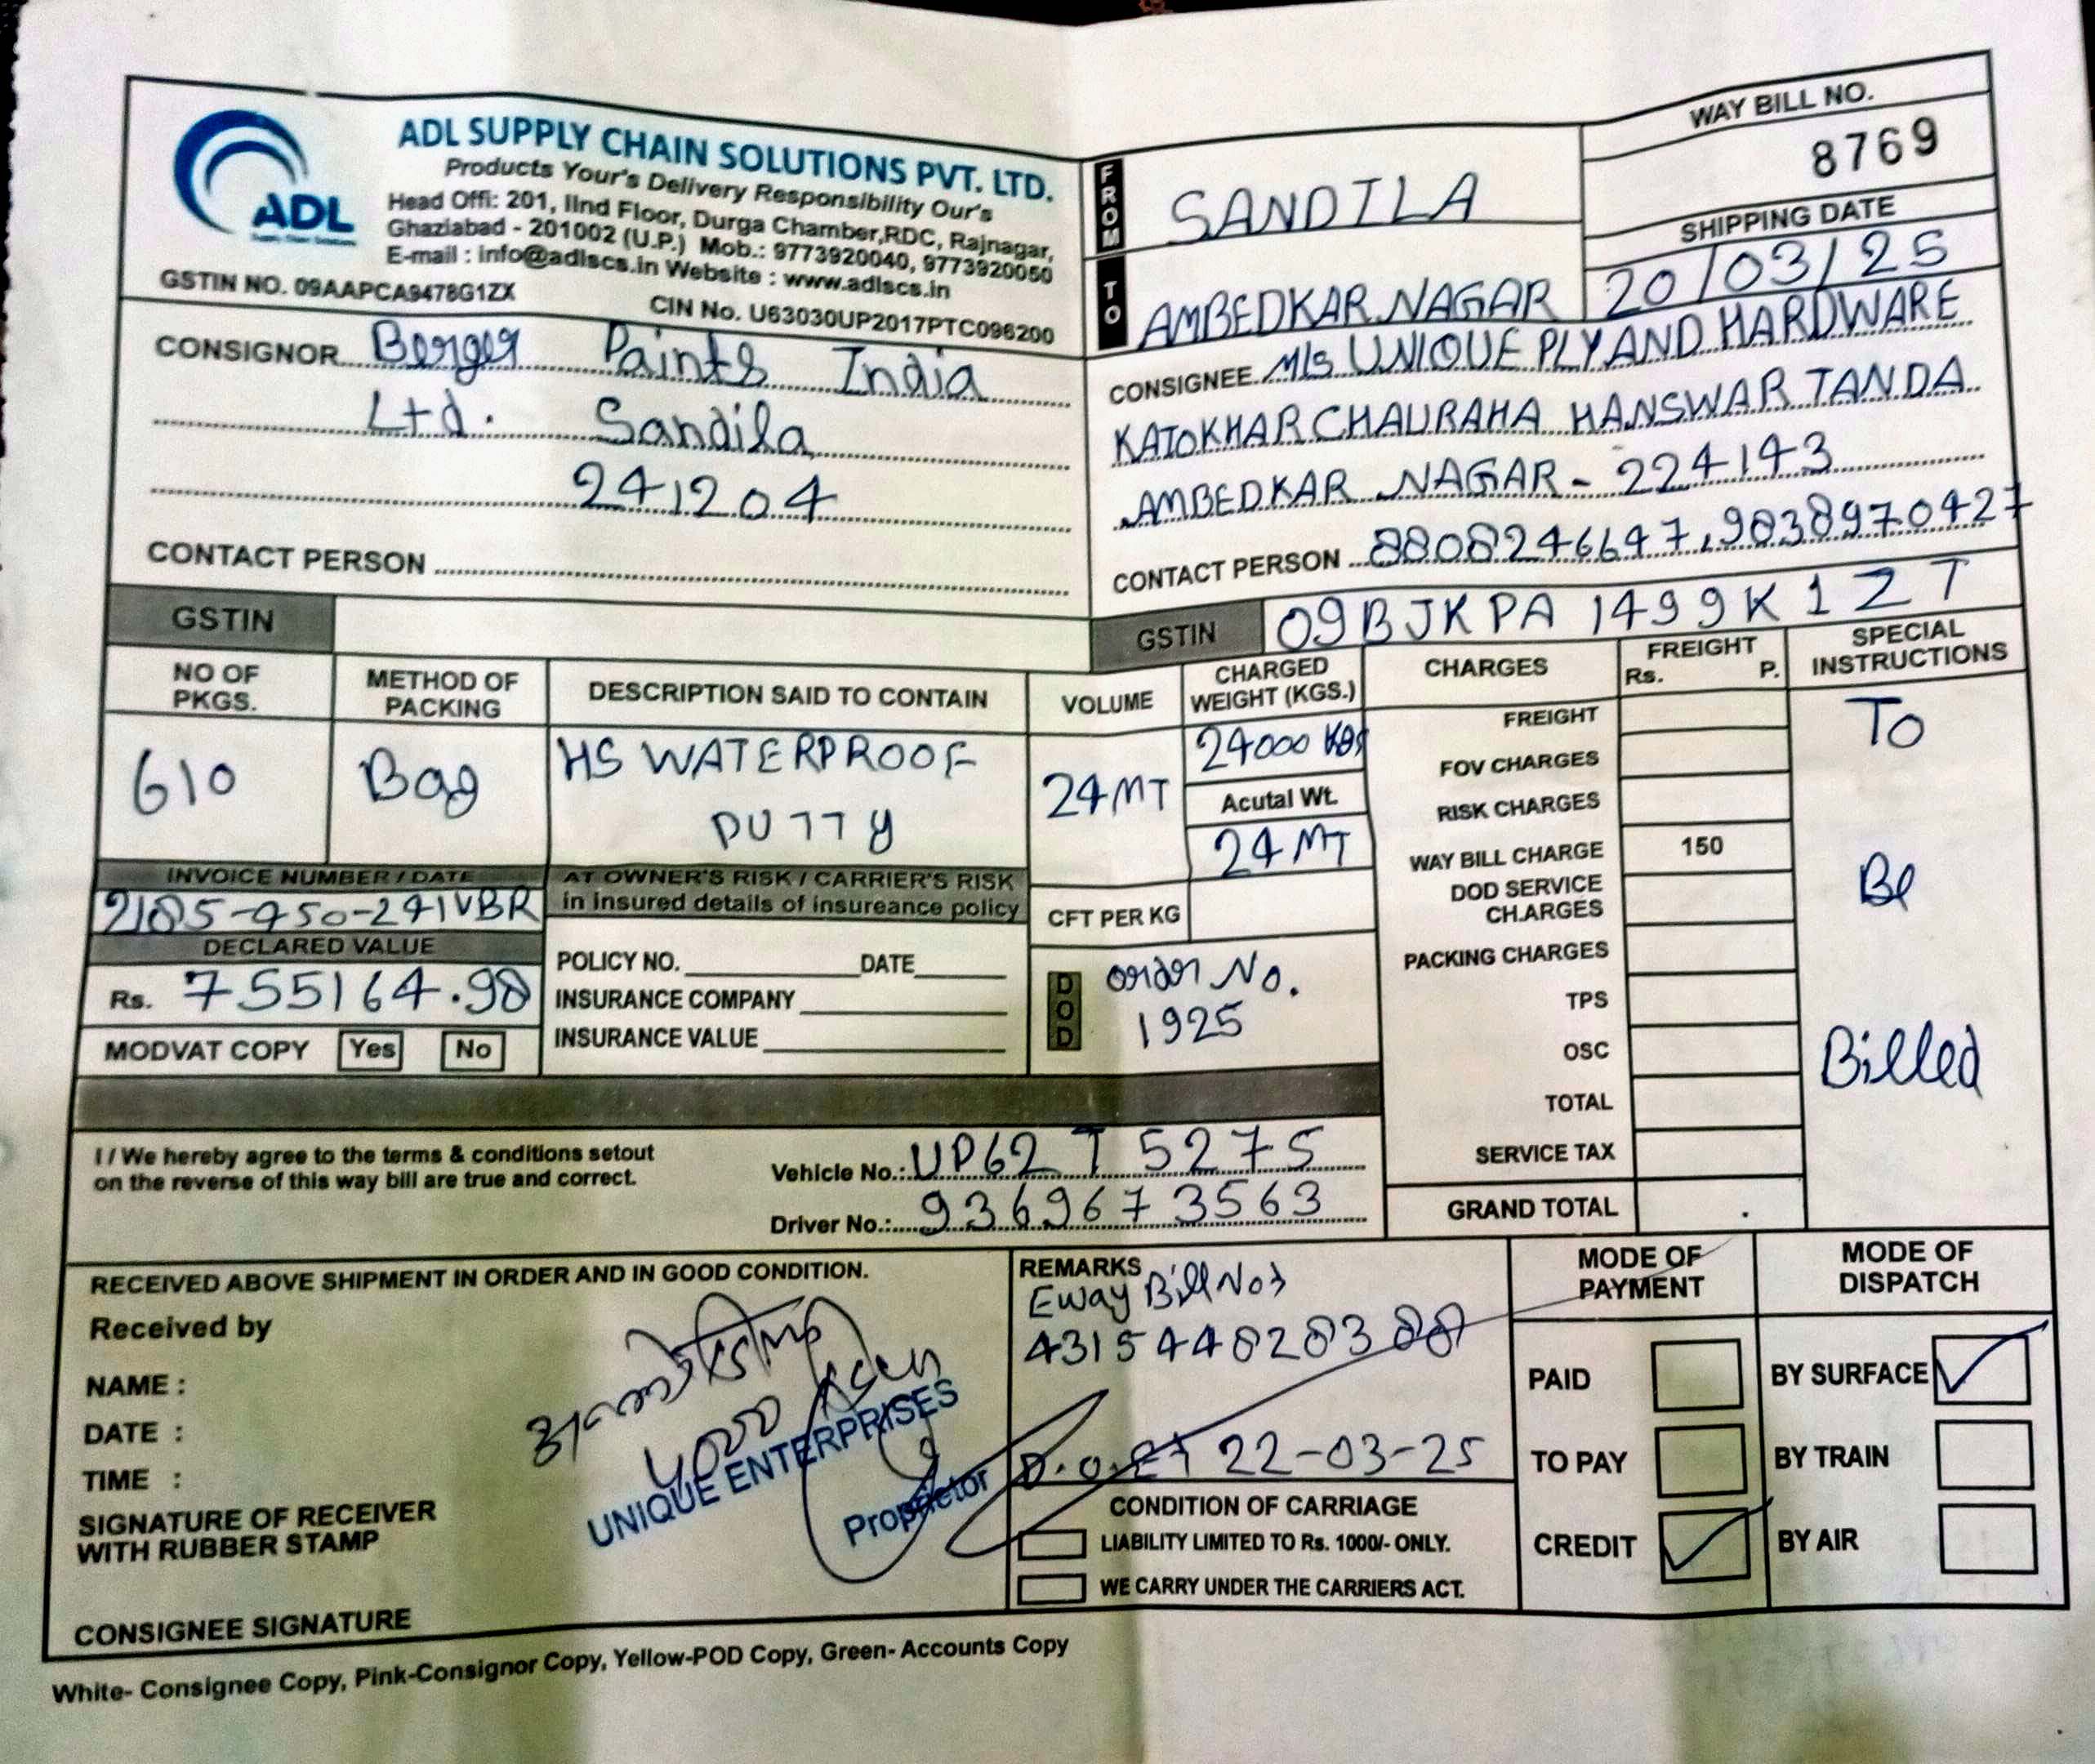 ADL
ADL SUPPLY CHAIN SOLUTIONS PVT. LTD.
Products Your's Delivery Responsibility Our's
Head Offi: 201, IInd Floor, Durga Chamber,RDC, Rajnagar,
Ghaziabad - 201002 (U.P.) Mob.: 9773920040, 9773920050
E-mail : info@adlscs.in Website : www.adlscs.in
GSTIN NO. 09AAPCA9478G1ZX
CIN No. U63030UP2017PTC096200
FROM SANDILA
TO AMBEDKAR NAGAR
WAY BILL NO.
8769
SHIPPING DATE
20/03/25
CONSIGNOR Berger Paints India
Ltd. Sandila
241204
CONTACT PERSON
CONSIGNEE M/s UNIQUE PLY AND HARDWARE
KATOKHAR CHAURAHA HANSWAR TANDA
AMBEDKAR NAGAR - 224143
CONTACT PERSON 8808246647, 9838970427
GSTIN
GSTIN 09BJKPA1499K1ZT
NO OF PKGS.
METHOD OF PACKING
DESCRIPTION SAID TO CONTAIN
VOLUME
CHARGED WEIGHT (KGS.)
CHARGES
FREIGHT
Rs. P.
SPECIAL INSTRUCTIONS
610
Bag
HS WATERPROOF
PUTTY
24MT
24000 KGS
Acutal Wt.
24 MT
CFT PER KG
INVOICE NUMBER / DATE
2185-450-241VBR
DECLARED VALUE
Rs. 755164.98
MODVAT COPY Yes No
AT OWNER'S RISK / CARRIER'S RISK
in insured details of insureance policy
POLICY NO. DATE
INSURANCE COMPANY
INSURANCE VALUE
DOD
Order No.
1925
FREIGHT
FOV CHARGES
RISK CHARGES
WAY BILL CHARGE 150
DOD SERVICE
CH.ARGES
PACKING CHARGES
TPS
OSC
TOTAL
SERVICE TAX
GRAND TOTAL .
To
Be
Billed
I / We hereby agree to the terms & conditions setout
on the reverse of this way bill are true and correct.
Vehicle No.: UP62 T 5275
Driver No.: 9369673563
RECEIVED ABOVE SHIPMENT IN ORDER AND IN GOOD CONDITION.
Received by
NAME :
DATE :
TIME :
SIGNATURE OF RECEIVER
WITH RUBBER STAMP
UNIQUE ENTERPRISES
Proprietor
CONSIGNEE SIGNATURE
REMARKS
Eway Bill No
431544828388
22-03-25
CONDITION OF CARRIAGE
LIABILITY LIMITED TO Rs. 1000/- ONLY.
WE CARRY UNDER THE CARRIERS ACT.
MODE OF
PAYMENT
PAID
TO PAY
CREDIT
MODE OF
DISPATCH
BY SURFACE
BY TRAIN
BY AIR
White- Consignee Copy, Pink-Consignor Copy, Yellow-POD Copy, Green- Accounts Copy